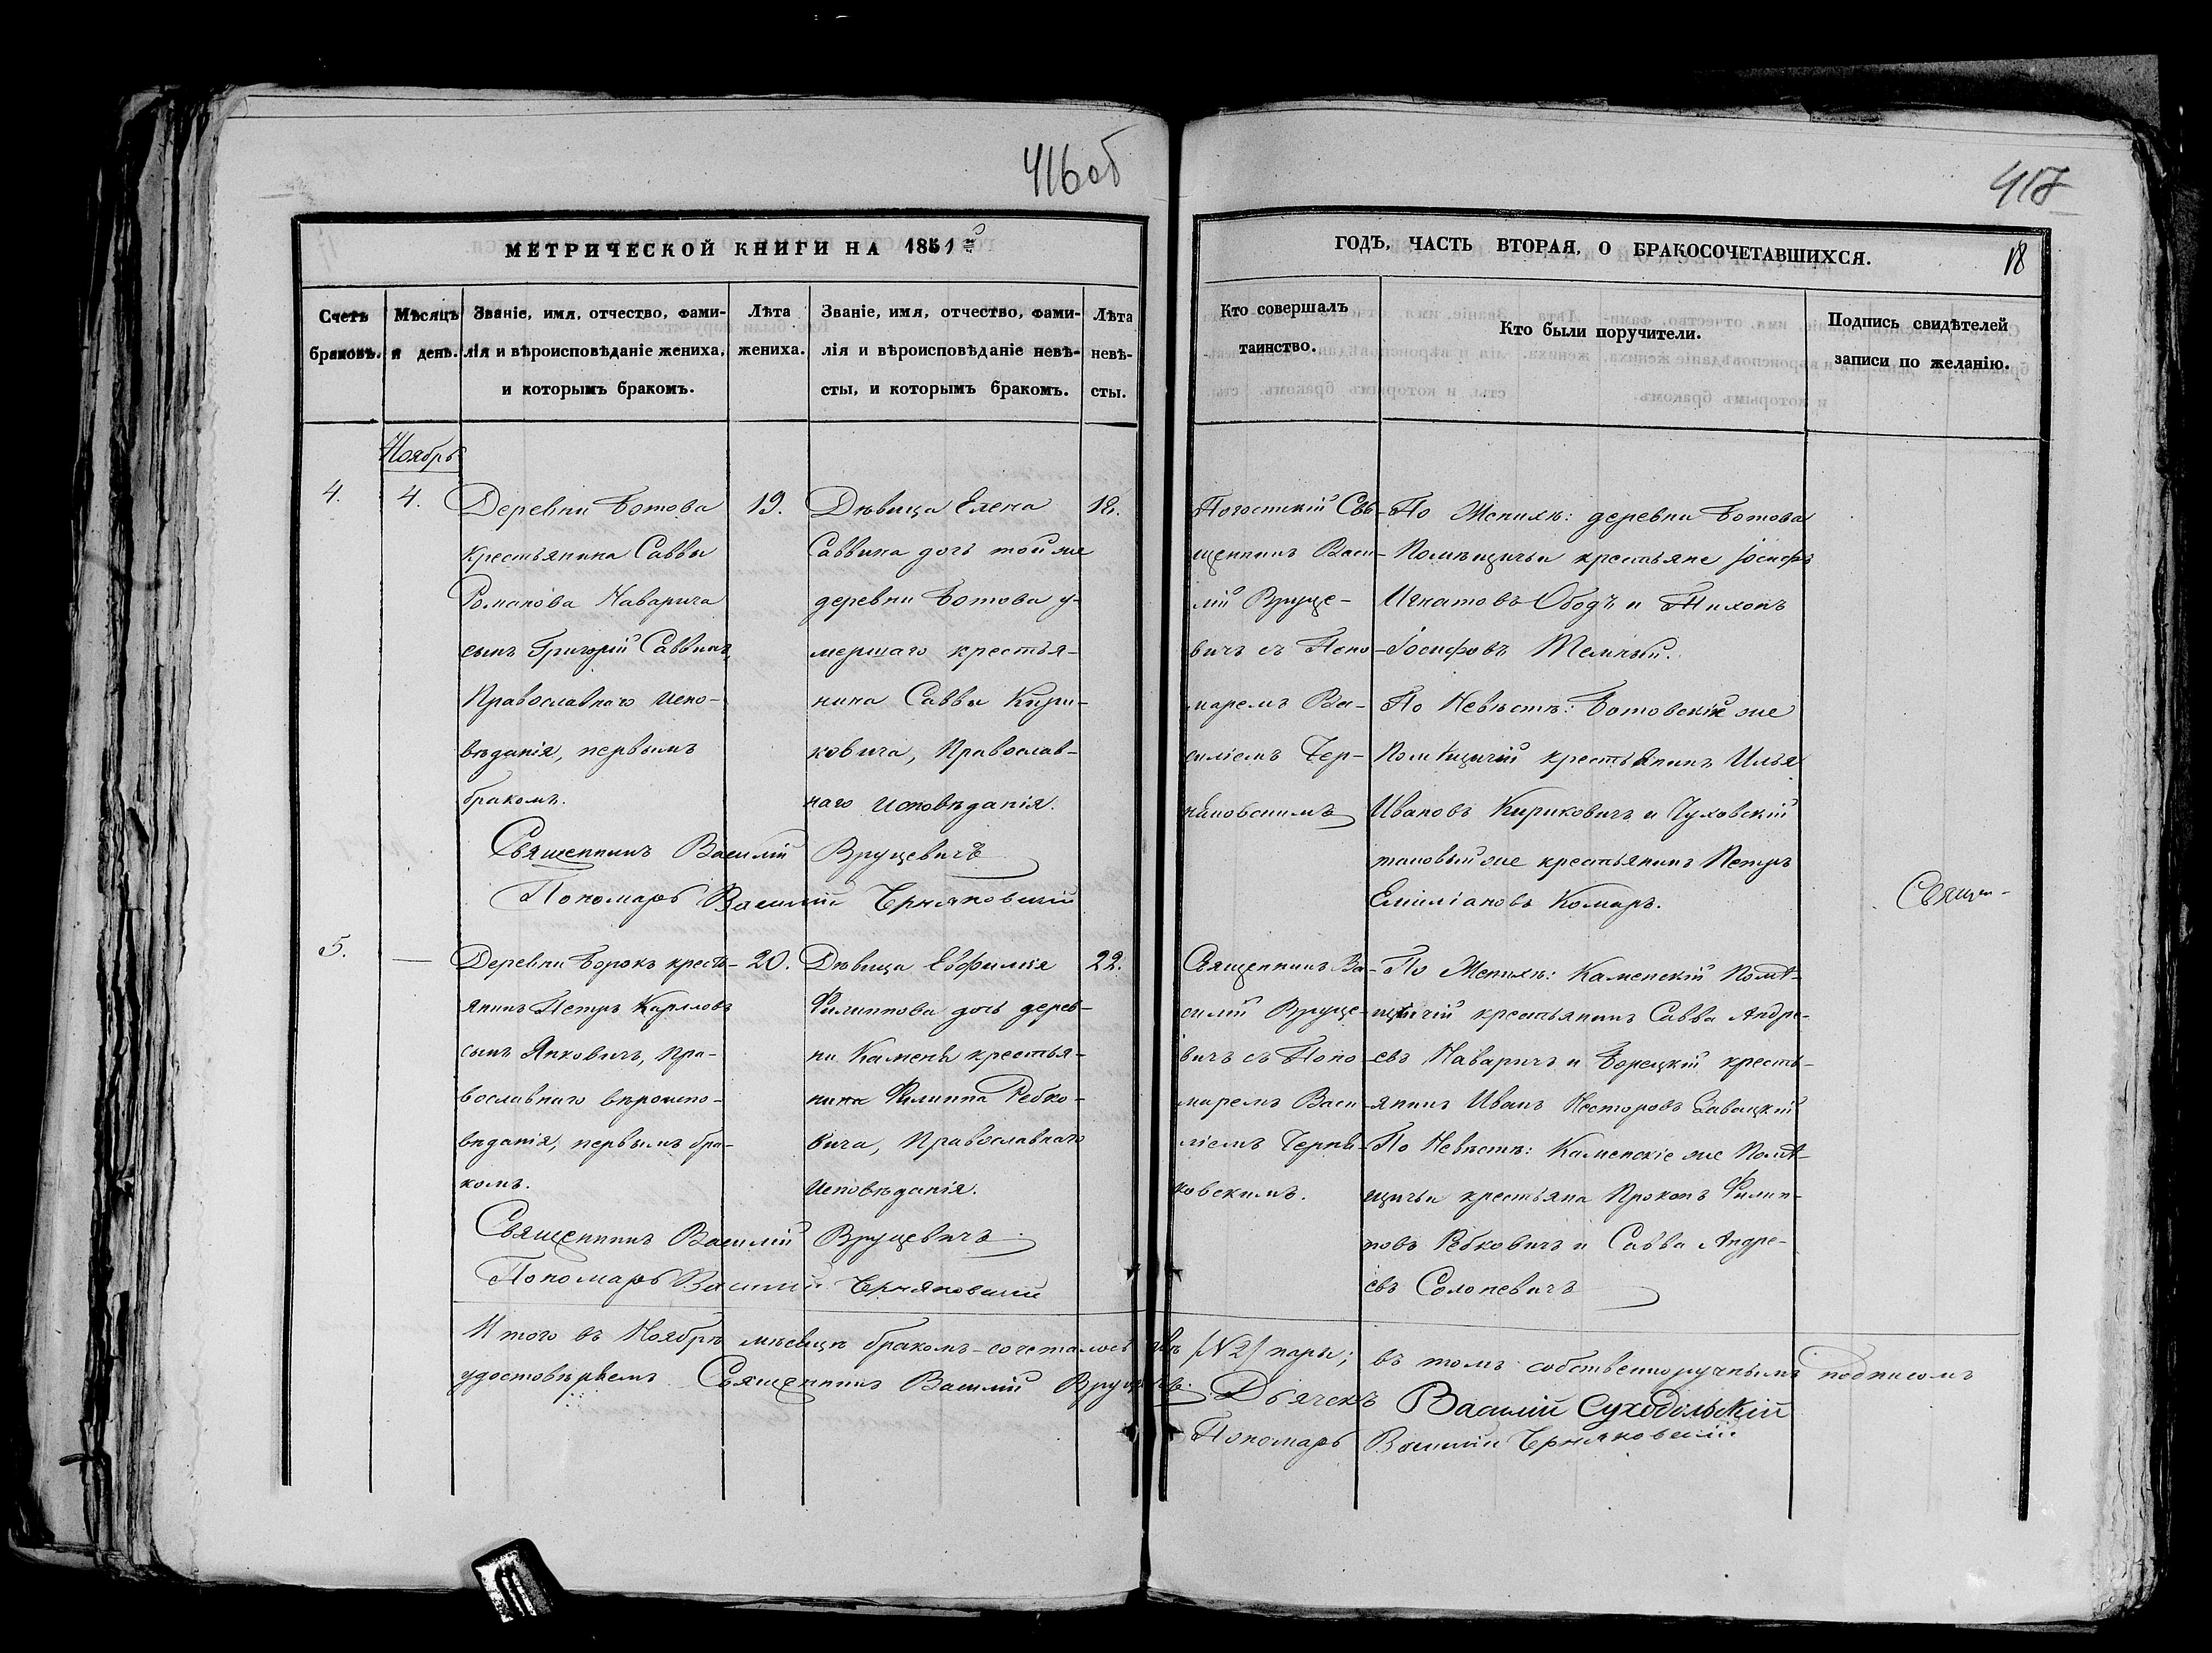 416 об
417
МЕТРИЧЕСКОЙ КНИГИ НА 1851й
ГОДЪ, ЧАСТЬ ВТОРАЯ, О БРАКОСОЧЕТАВШИХСЯ.
18
Счетъ
браковъ.
Мѣсяцъ
и день.
Званіе, имя, отчество, фами-
лія и вѣроисповѣданіе жениха,
и которымъ бракомъ.
Лѣта
жениха.
Званіе, имя, отчество, фами-
лія и вѣроисповѣданіе невѣ-
сты, и которымъ бракомъ.
Лѣта
невѣ-
сты.
Кто совершалъ
таинство.
Кто были поручители.
Подпись свидѣтелей
записи по желанію.
Ноябрь
4.
4.
Деревни Ботова
крестьянина Саввы
Романова Наварича
сынъ Григорій Саввинъ,
Православнаго испо-
вѣданія, первымъ
бракомъ.
19.
Дѣвица Елена
Саввина дочь той же
деревни Ботова у-
мершаго крестья-
нина Саввы Кири-
ковича, Православ-
наго исповѣданія.
18.
Священникъ Василій Вруцевичъ
Пономарь Василій Черняковскій
Погостскій Свя-
щенникъ Васи-
лій Вруце-
вичъ съ Поно-
маремъ Ва-
силіемъ Чер-
няковскимъ
По Женихѣ: деревни Ботова
Помѣщичьи крестьяне Іосифъ
Игнатовъ Ободъ и Тихонъ
Іосифовъ
По Невѣстѣ: Ботовскій же
Помѣщичій крестьянинъ Илья
Ивановъ Кириковичъ и Чуховскій
таковый же крестьянинъ Петръ
Емиліановъ Комаръ.
Свящ-
5.
—
Деревни Борокъ кресть-
янинъ Петръ Карповъ
сынъ Янковичъ, Пра-
вославнаго вѣроиспо-
вѣданія, первымъ бра-
комъ.
20.
Дѣвица Евфимія
Филиппова дочь дерев-
ни Каменя крестья-
нина Филиппа Ребко-
вича, Православнаго
исповѣданія.
22.
Священникъ Василій Вруцевичъ
Пономарь Василій Черняковскій
Священникъ Ва-
силій Вруце-
вичъ съ Поно-
маремъ Васи-
ліемъ Черня-
ковскимъ.
По Женихѣ: Каменскій Помѣ-
щичій крестьянинъ Савва Андре-
евъ Наваричъ и Борецкій кресть-
янинъ Иванъ Несторовъ Завацкій
По Невѣстѣ: Каменскіе же Помѣ-
щичьи крестьяна Прокопъ Филип-
повъ Ребковичъ и Савва Андре-
евъ Солоневичъ
Итого въ Ноябрѣ мѣсяцѣ бракомъ-сочеталось двѣ /№ 2/ пары; въ томъ собственноручнымъ подписомъ
удостовѣряемъ Священникъ Василій Вруцевичъ.
Дьячекъ Василій Суходольскій
Пономарь Василій Черняковскій